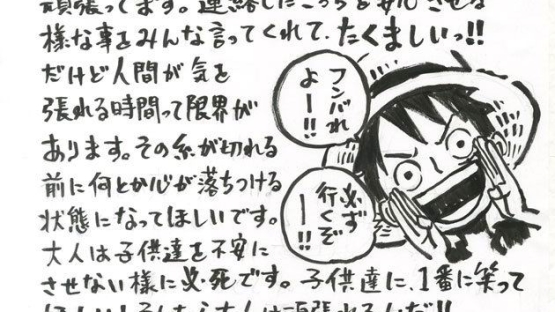 頑張ってます。連絡したこっちを安心させる
様な事をみんな言ってくれて、たくましいっ!!
だけど人間が気を
張れる時間って限界が
あります。その糸が切れる
前に何とか心が落ちつける
状態になってほしいです。
大人は子供達を不安に
させない様に必死です。子供達に、1番に笑って
ほしい！そしたら大人は頑張れるんだ!!
フンバれ
よー!!
必ず
行くぞ
ー!!